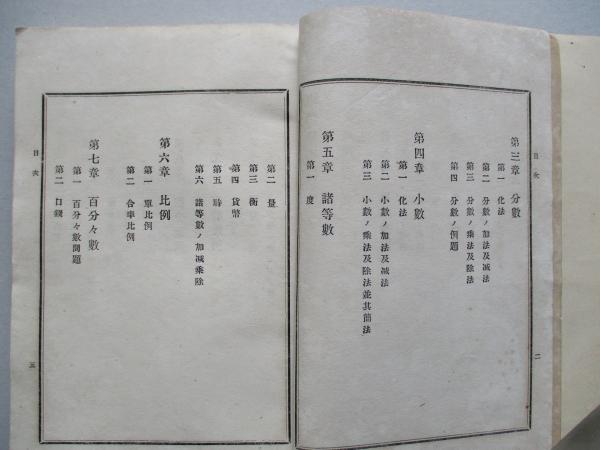 目次
第三章 分數
第一 化法
第二 分數ノ加法及減法
第三 分數ノ乘法及除法
第四 分數ノ例題
第四章 小數
第一 化法
第二 小數ノ加法及減法
第三 小數ノ乘法及除法並其簡法
第五章 諸等數
第一 度
二
第二 量
第三 衡
第四 貨幣
第五 時
第六 諸等數ノ加減乘除
第六章 比例
第一 單比例
第二 合率比例
第七章 百分々數
第一 百分々數問題
第二 口錢
目次
五